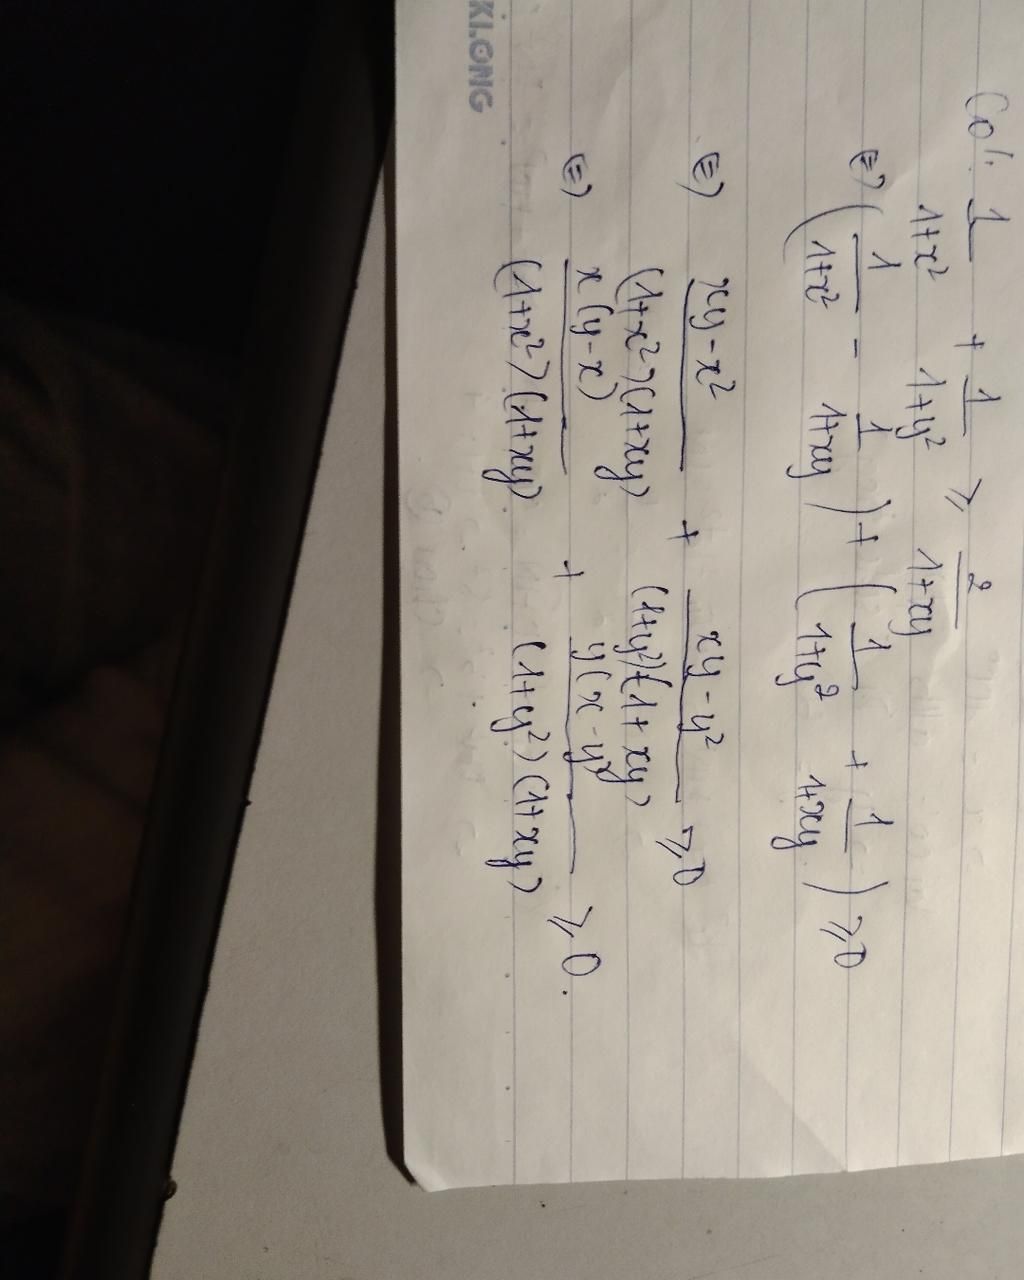 Có: 1/(1+x²) + 1/(1+y²) ⩾ 2/(1+xy)
(=) (1/(1+x²) - 1/(1+xy)) + (1/(1+y²) + 1/(1+xy)) ⩾ 0
(=) (xy-x²)/((1+x²)(1+xy)) + (xy-y²)/((1+y²)+(1+xy)) ⩾ 0
(=) x(y-x)/((1+x²)(1+xy)) + y(x-y)/((1+y²)(1+xy)) ⩾ 0.
KI.ONG